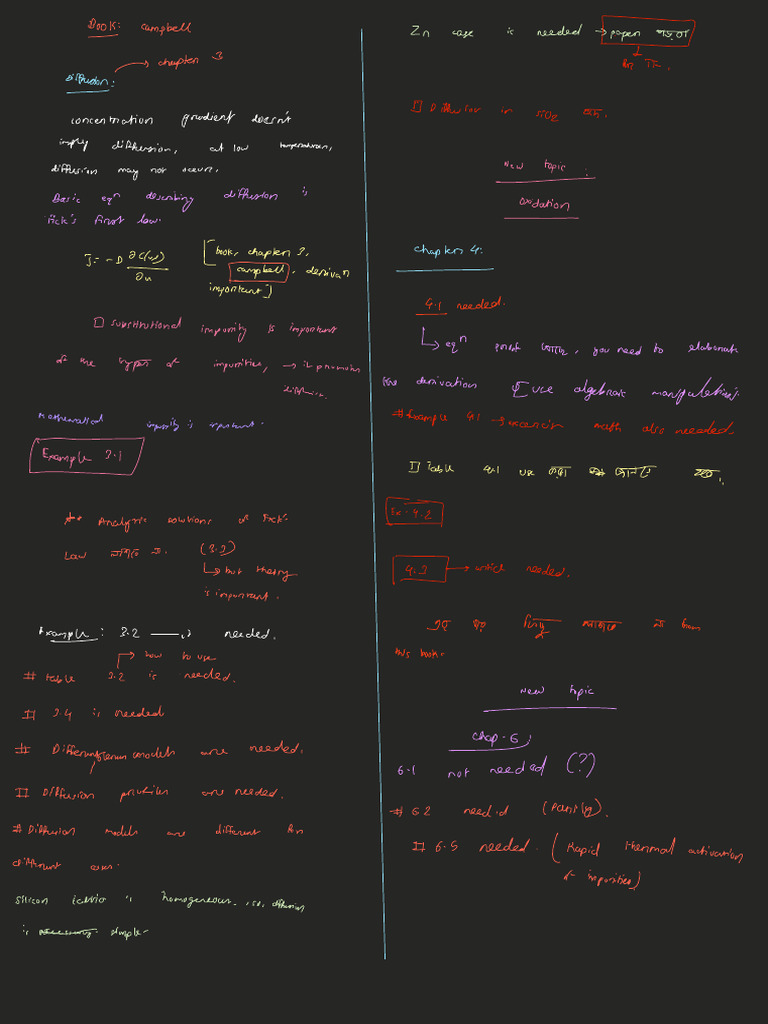 Book: campbell
chapter 3
Diffusion:
concentration gradient doesn't
imply diffusion, at low temperatures,
diffusion may not occur.
Basic eqn describing diffusion is
Fick's first law.
J = -D ∂C(x) / ∂x
[book, chapter 3,
campbell, derivan
important]
□ substitutional impurity is important
of the types of impurities, →
Mathematical is important.
Example 3.1
** Analytic solutions of Fick's
Law লাগবে না. (3.3)
↳ but theory
is important.
Example: 3.2 needed.
how to use
# table 3.2 is needed.
# 3.4 is needed
# Different models are needed.
# Diffusion profiles are needed.
# Diffusion models are different for
different cases.
silicon is homogeneous, so, diffusion
is simple.
Zn case is needed → paper পড়তে
□ Diffusion in SiO2 বাদ.
New topic:
Oxidation
Chapter 4:
4.1 needed.
↳ eqn আছে, you need to elaborate
the derivation [use algebraic manipulation].
# Example 4.1 → math also needed.
□ Table 4.1 use করা জানতে হবে.
Ex-4.2
4.3 → needed.
এর পর কিছু লাগবে না from
this book.
New topic
Chap-6:
6.1 not needed (?)
# 6.2 needed (partly).
# 6.5 needed. (Rapid thermal activation
of impurities)